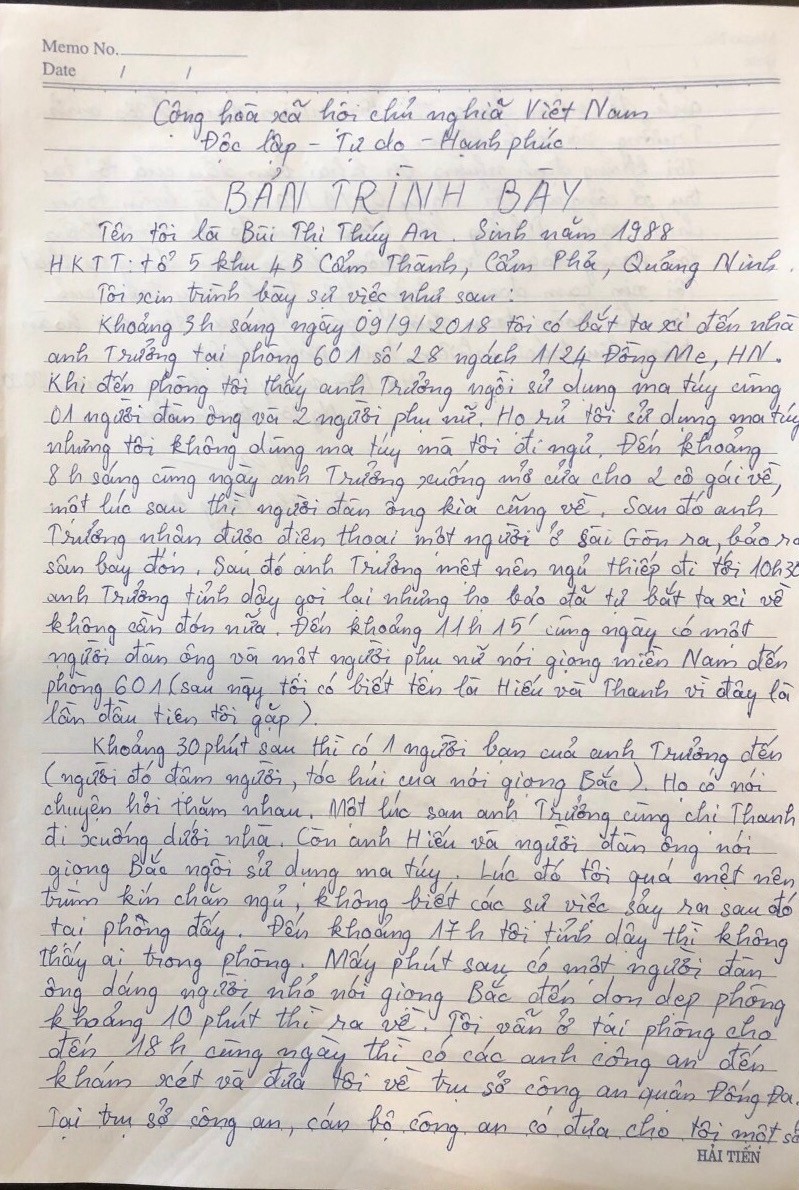 Memo No.
Date / /
Cộng hoà xã hội chủ nghĩã Việt Nam
Độc lập - Tự do - Hạnh phúc
BẢN TRÌNH BÀY
Tên tôi là Bùi Thị Thúy An. Sinh năm 1988
HKTT: tổ 5 khu 4B Cẩm Thành, Cẩm Phả, Quảng Ninh.
Tôi xin trình bày sự việc như sau:
Khoảng 3h sáng ngày 09/9/2018 tôi có bắt ta xi đến nhà
anh Trưởng tại phòng 601 số 28 ngách 1/24 Đông Me, HN.
Khi đến phòng tôi thấy anh Trưởng ngồi sử dụng ma túy cùng
01 người đàn ông và 2 người phụ nữ. Họ rủ tôi sử dụng ma túy
nhưng tôi không dùng ma túy mà tôi đi ngủ. Đến khoảng
8h sáng cùng ngày anh Trưởng xuống mở cửa cho 2 cô gái về,
một lúc sau thì người đàn ông kia cũng về. Sau đó anh
Trưởng nhận được điện thoại một người ở Sài Gòn ra, bảo ra
sân bay đón. Sau đó anh Trưởng mệt nên ngủ thiếp đi tới 10h30
anh Trưởng tỉnh dậy gọi lại nhưng họ bảo đã tự bắt ta xi về
không cần đón nữa. Đến khoảng 11h 15' cùng ngày có một
người đàn ông và một người phụ nữ nói giọng miền Nam đến
phòng 601 (sau này tôi có biết tên là Hiếu và Thanh vì đây là
lần đầu tiên tôi gặp).
Khoảng 30 phút sau thì có 1 người bạn của anh Trưởng đến
(người đó đậm người, tóc húi cua nói giọng Bắc). Họ có nói
chuyện hỏi thăm nhau. Một lúc sau anh Trưởng cùng chị Thanh
đi xuống dưới nhà. Còn anh Hiếu và người đàn ông nói
giọng Bắc ngồi sử dụng ma túy. Lúc đó tôi quá mệt nên
trùm kín chăn ngủ, không biết các sự việc sảy ra sau đó
tại phòng đấy. Đến khoảng 17h tôi tỉnh dậy thì không
thấy ai trong phòng. Mấy phút sau có một người đàn
ông dáng người nhỏ nói giọng Bắc đến dọn dẹp phòng
khoảng 10 phút thì ra về. Tôi vẫn ở tại phòng cho
đến 18h cùng ngày thì có các anh công an đến
khám xét và đưa tôi về trụ sở công an quận Đống Đa.
Tại trụ sở công an, cán bộ công an có đưa cho tôi một số
HẢI TIẾN